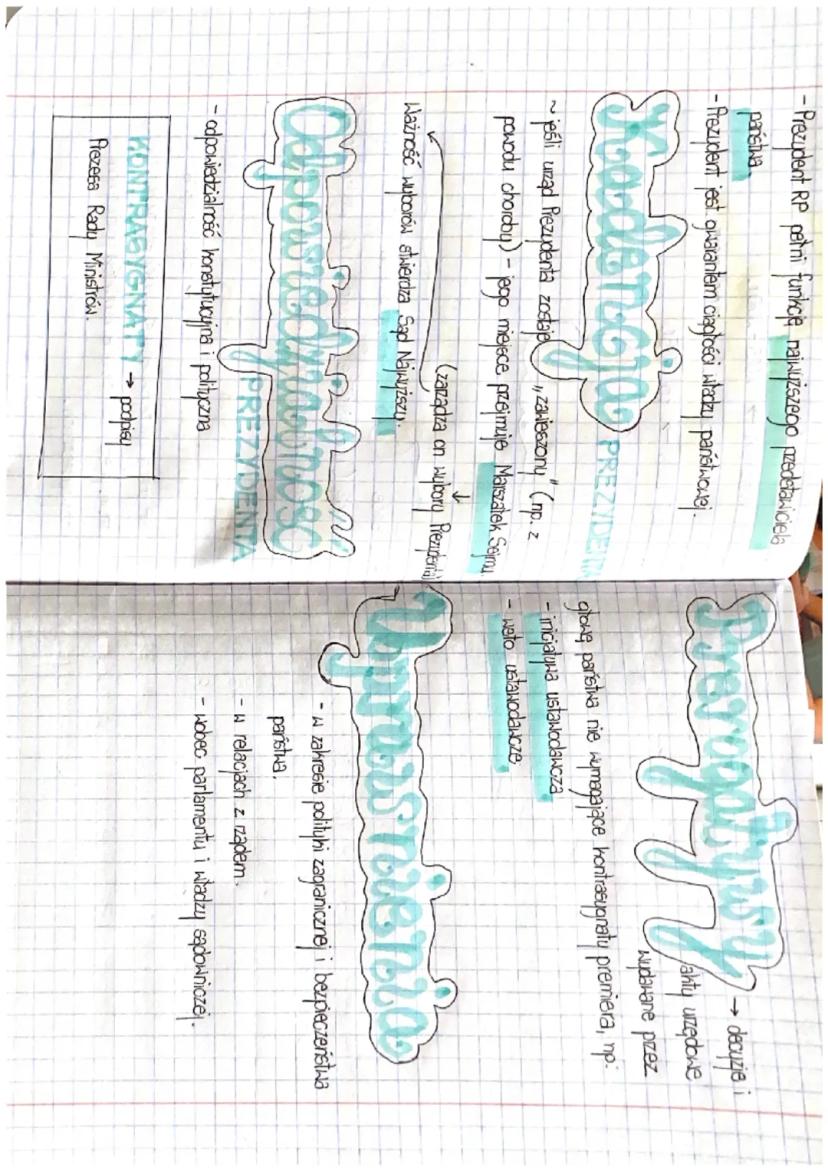 - Prezydent RP pełni funkcję najwyższego przedstawiciela
państwa.
- Prezydent jest gwarantem ciągłości władzy państwowej.
Kadencja PREZYDENTA
~ jeśli urząd Prezydenta zostaje „zawieszony" (np. z
powodu choroby) - jego miejsce przejmuje Marszałek Sejmu.
(zarządza on wybory Prezydenta)
Ważność wyborów stwierdza Sąd Najwyższy.
Odpowiedzialność
PREZYDENTA
- odpowiedzialność konstytucyjna i polityczna
KONTRASYGNATY → podpisy
Prezesa Rady Ministrów.
Prerogatywy → decyzje i
akty urzędowe
wydawane przez
głowę państwa nie wymagające kontrasygnaty premiera, np:
- inicjatywa ustawodawcza
- weto ustawodawcze
Uprawnienia
- w zakresie polityki zagranicznej i bezpieczeństwa
państwa.
- w relacjach z rządem.
- wobec parlamentu i władzy sądowniczej.